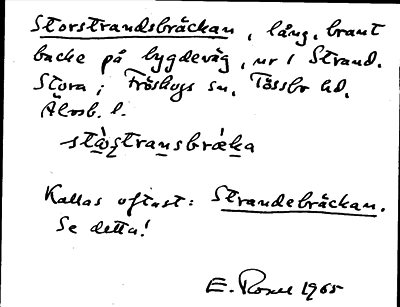 Storstrandsbräckan, lång, brant
backe på bygdeväg, nr 1 Strand,
Stora; Fröskogs sn, Tössbo hd,
Älvsb. l.
stȯ̀ṣtransbrǽka
Kallas oftast: Strandebräckan.
Se detta!
E. Rosell 1965